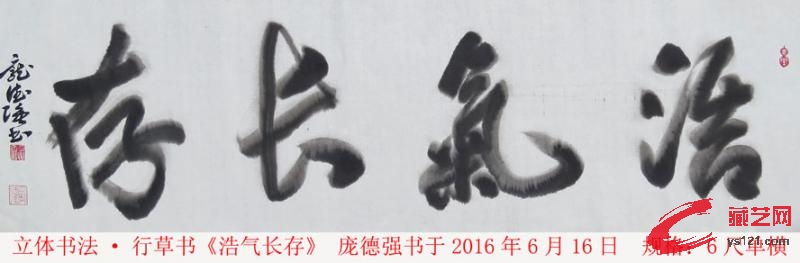 浩氣长存
龐德强书
立体书法 • 行草书《浩气长存》 庞德强书于 2016 年 6 月 16 日 规格：6 尺单横
藏艺网
ys121.com